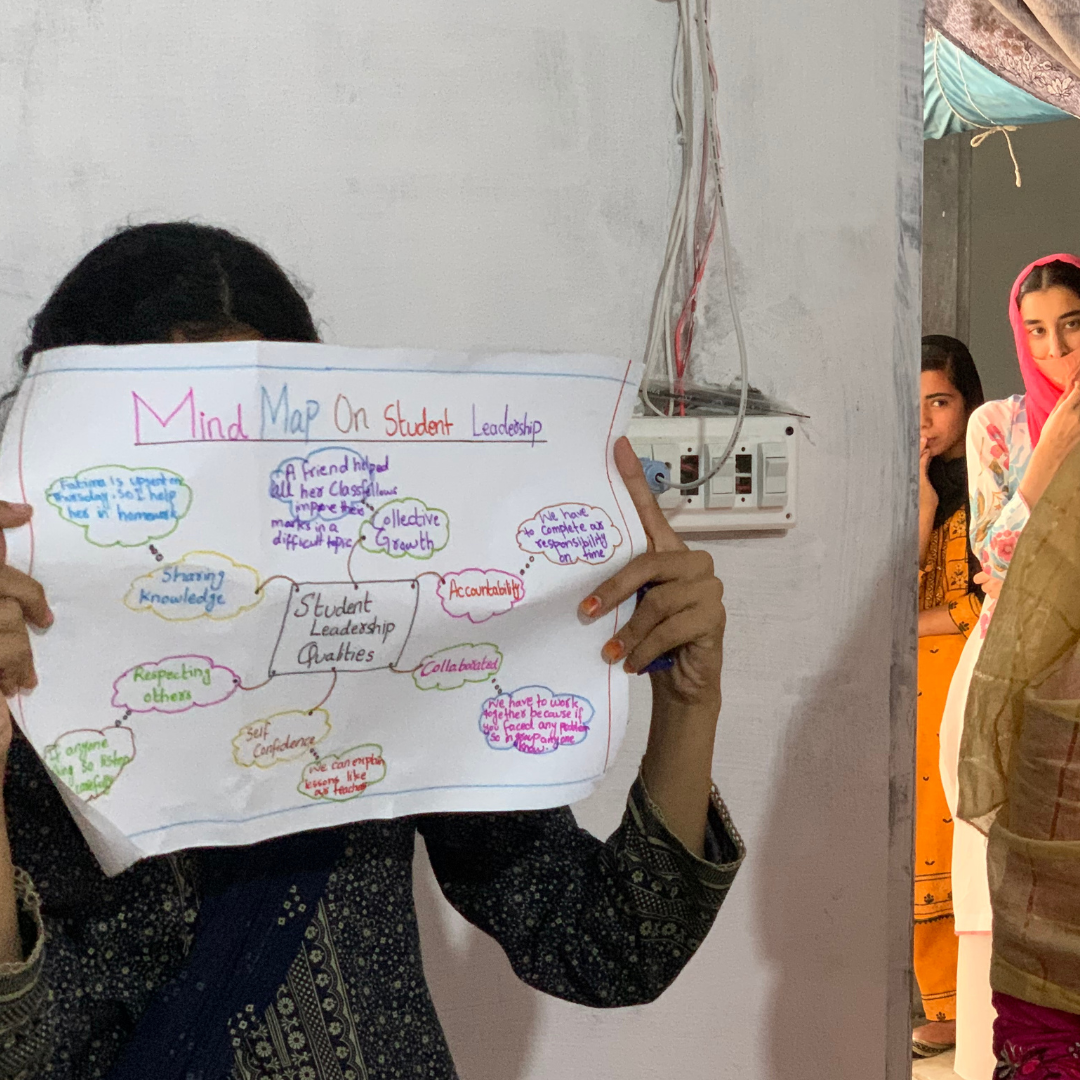 Mind Map On Student Leadership
Fatima is upsent on
Thursday. So I help
her in homework
A friend helped
all her Classfellows
improve their
marks in a
difficult topic
Collective
Growth
We have
to complete our
responsibility
on time
Sharing
Knowledge
Accountability
Student
Leadership
Qualities
Respecting
others
Collaborated
We have to work
together because if
you faced any problem
so in group anyone
know.
Self
Confidence
If anyone
so listen
We can explain
lessons like
our teacher